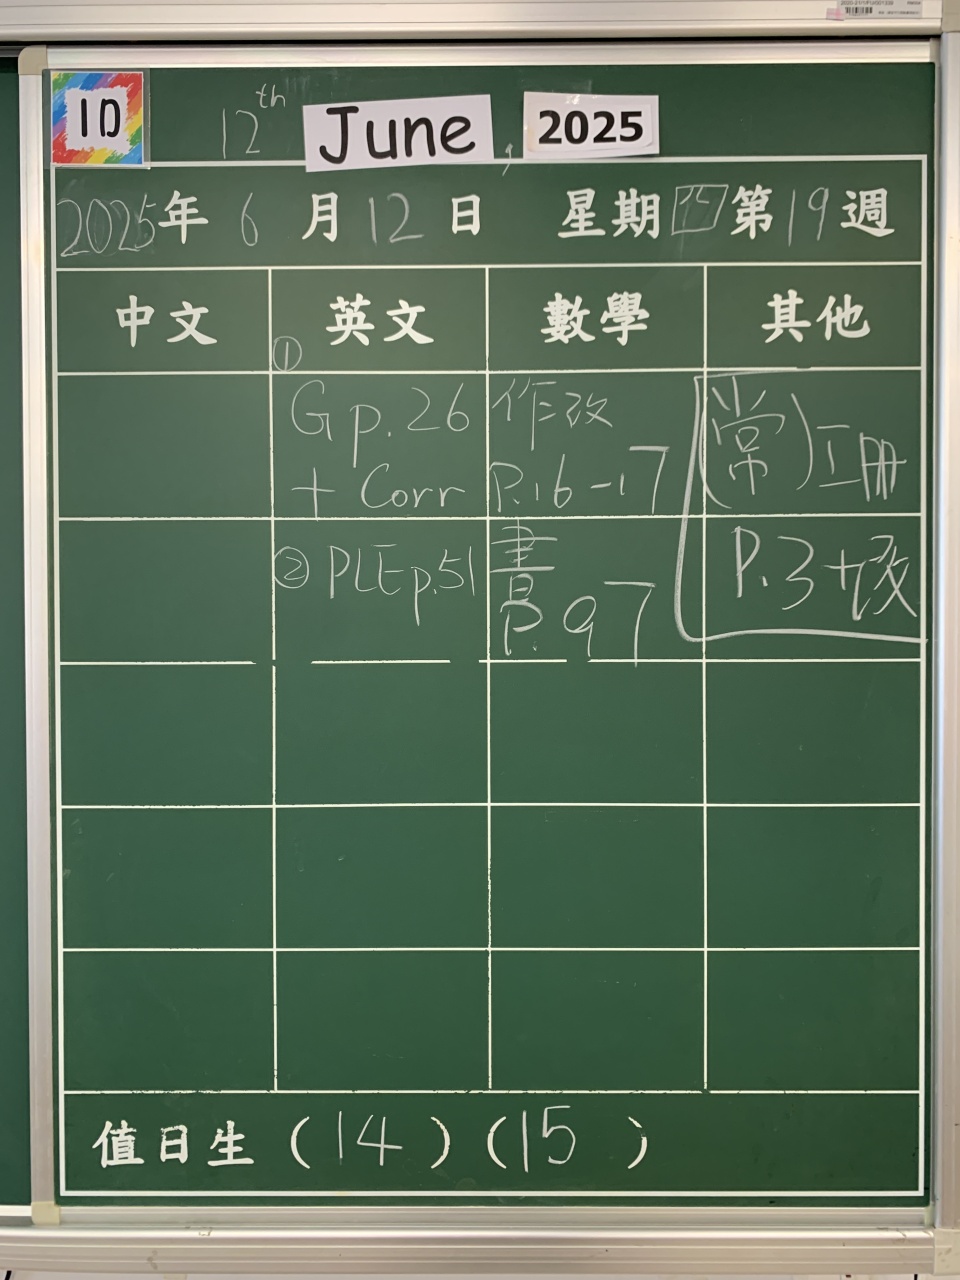 1D
12th June, 2025
2025年6月12日 星期四第19週
中文 英文 數學 其他
①
Gp.26
+ Corr
② PLEp.51
作改
P.16-17
書
P.97
(常)工冊
P.3+改
值日生(14)(15)